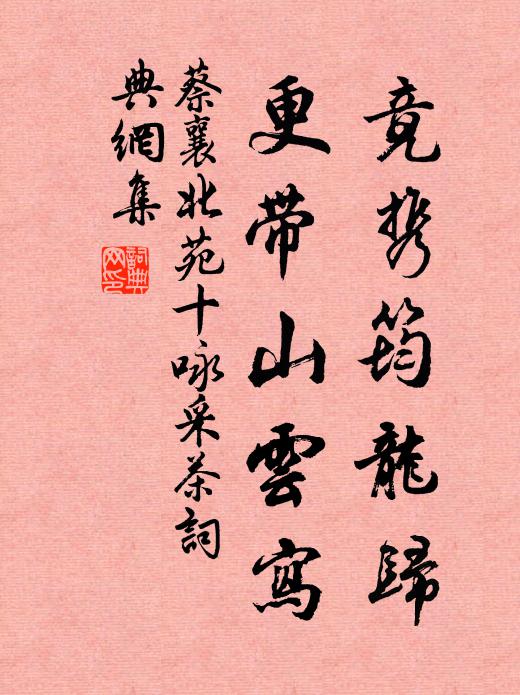 竟携筠龍歸
更带山雲寫
蔡襄北苑十咏采茶詞
典網集
詞典
网印